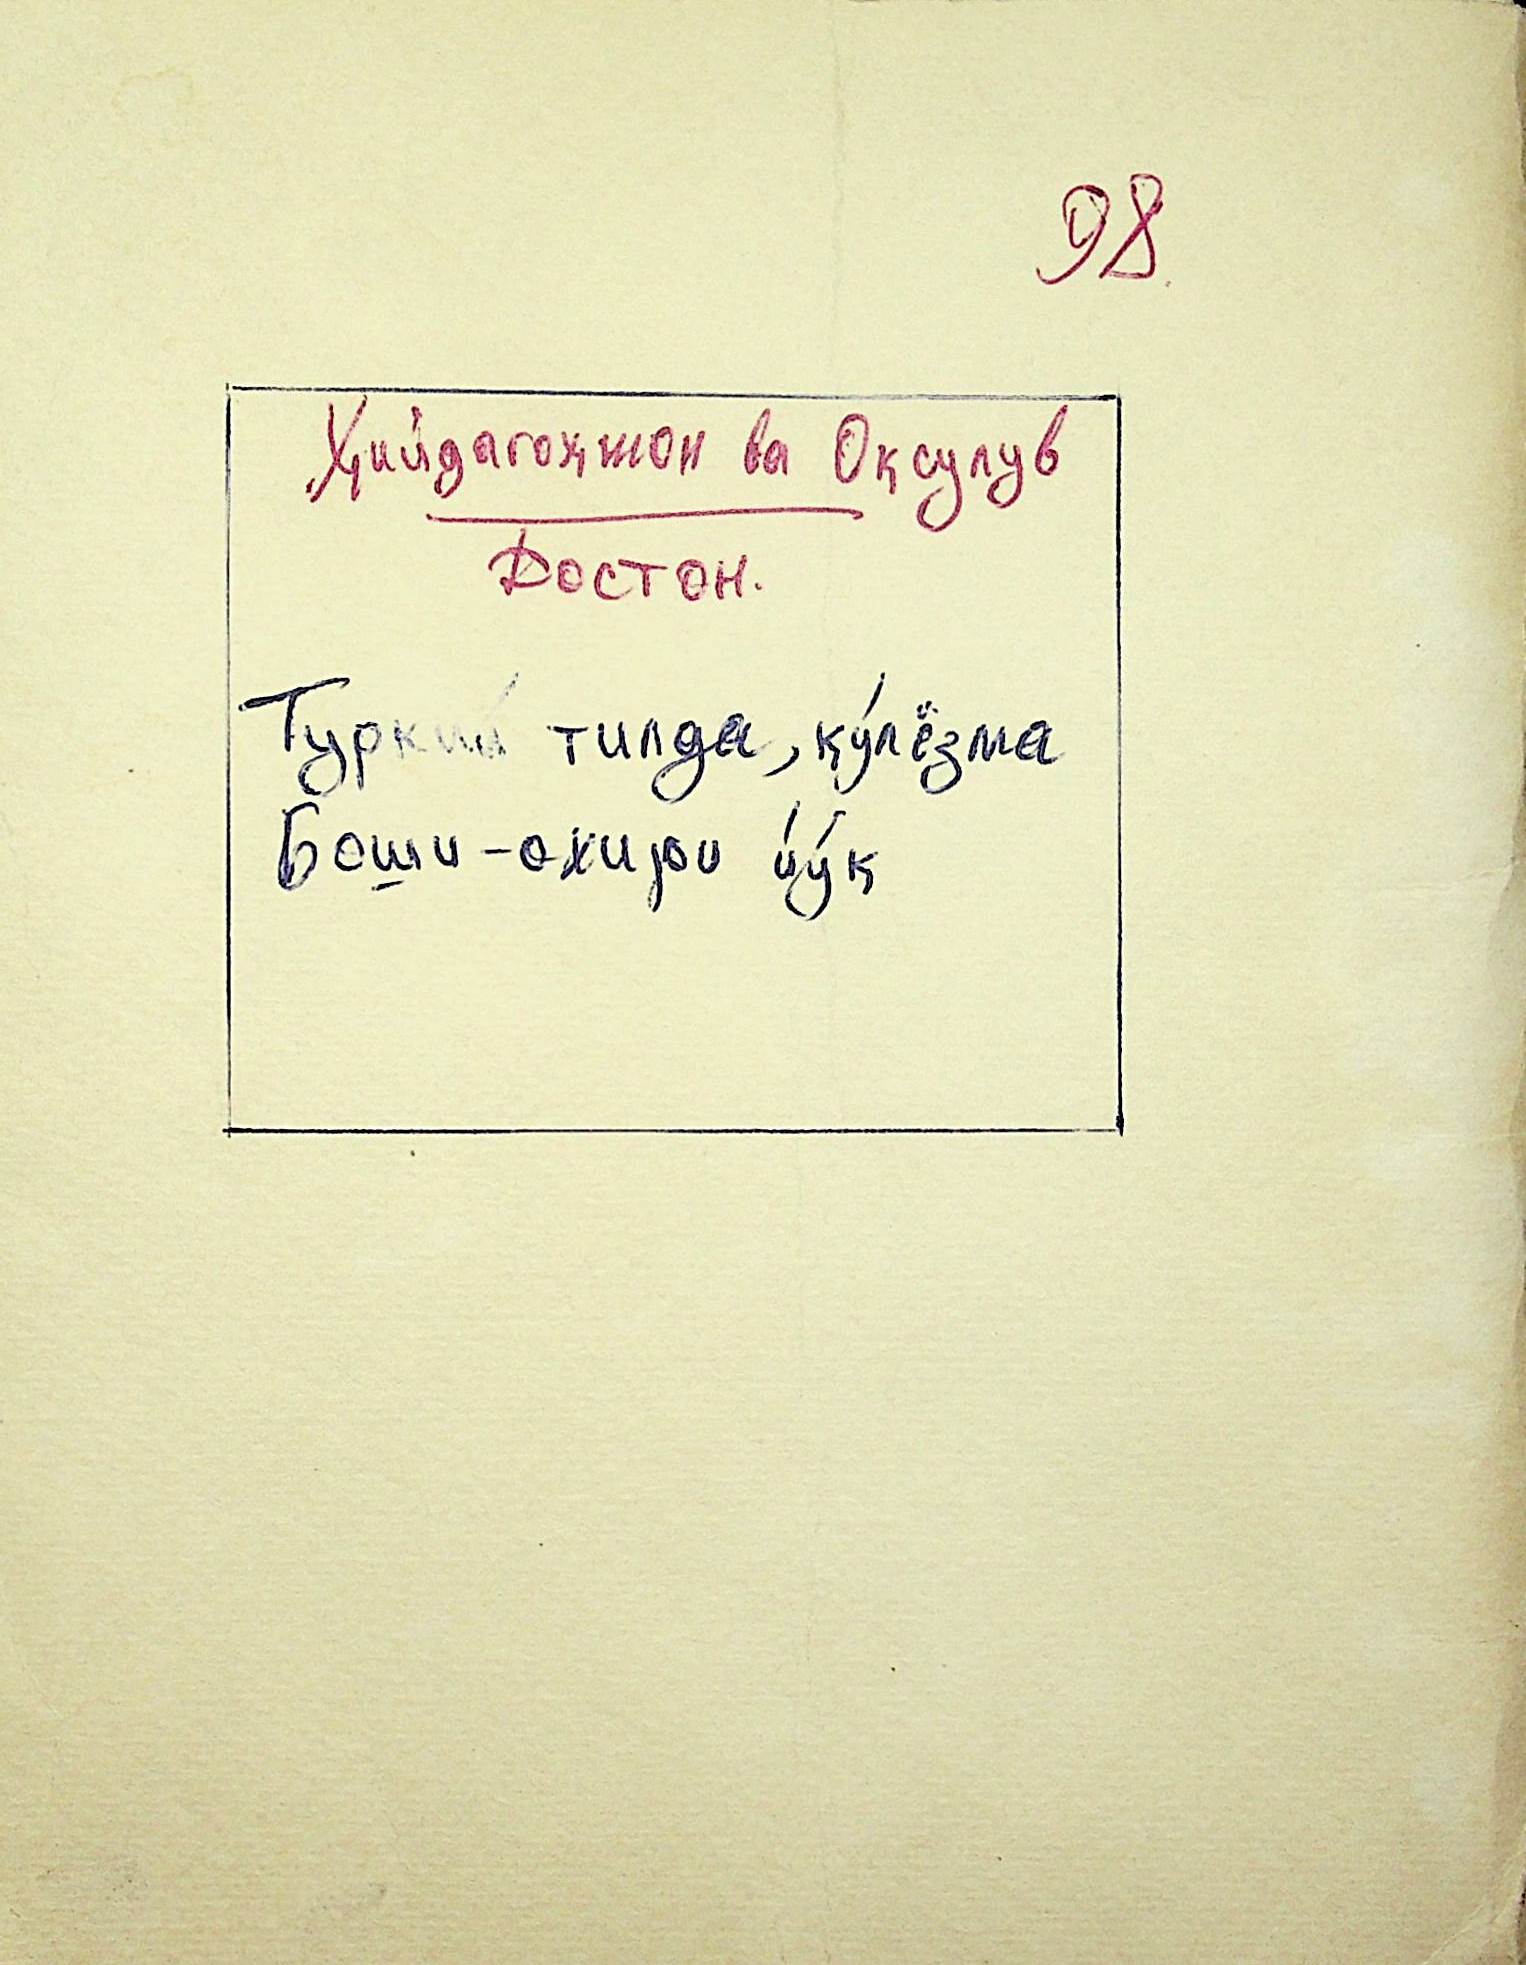 98
Ҳийдагоҳжон ва Оқсулув
Достон.
Туркий тилда, қўлёзма
Боши-охири йўқ